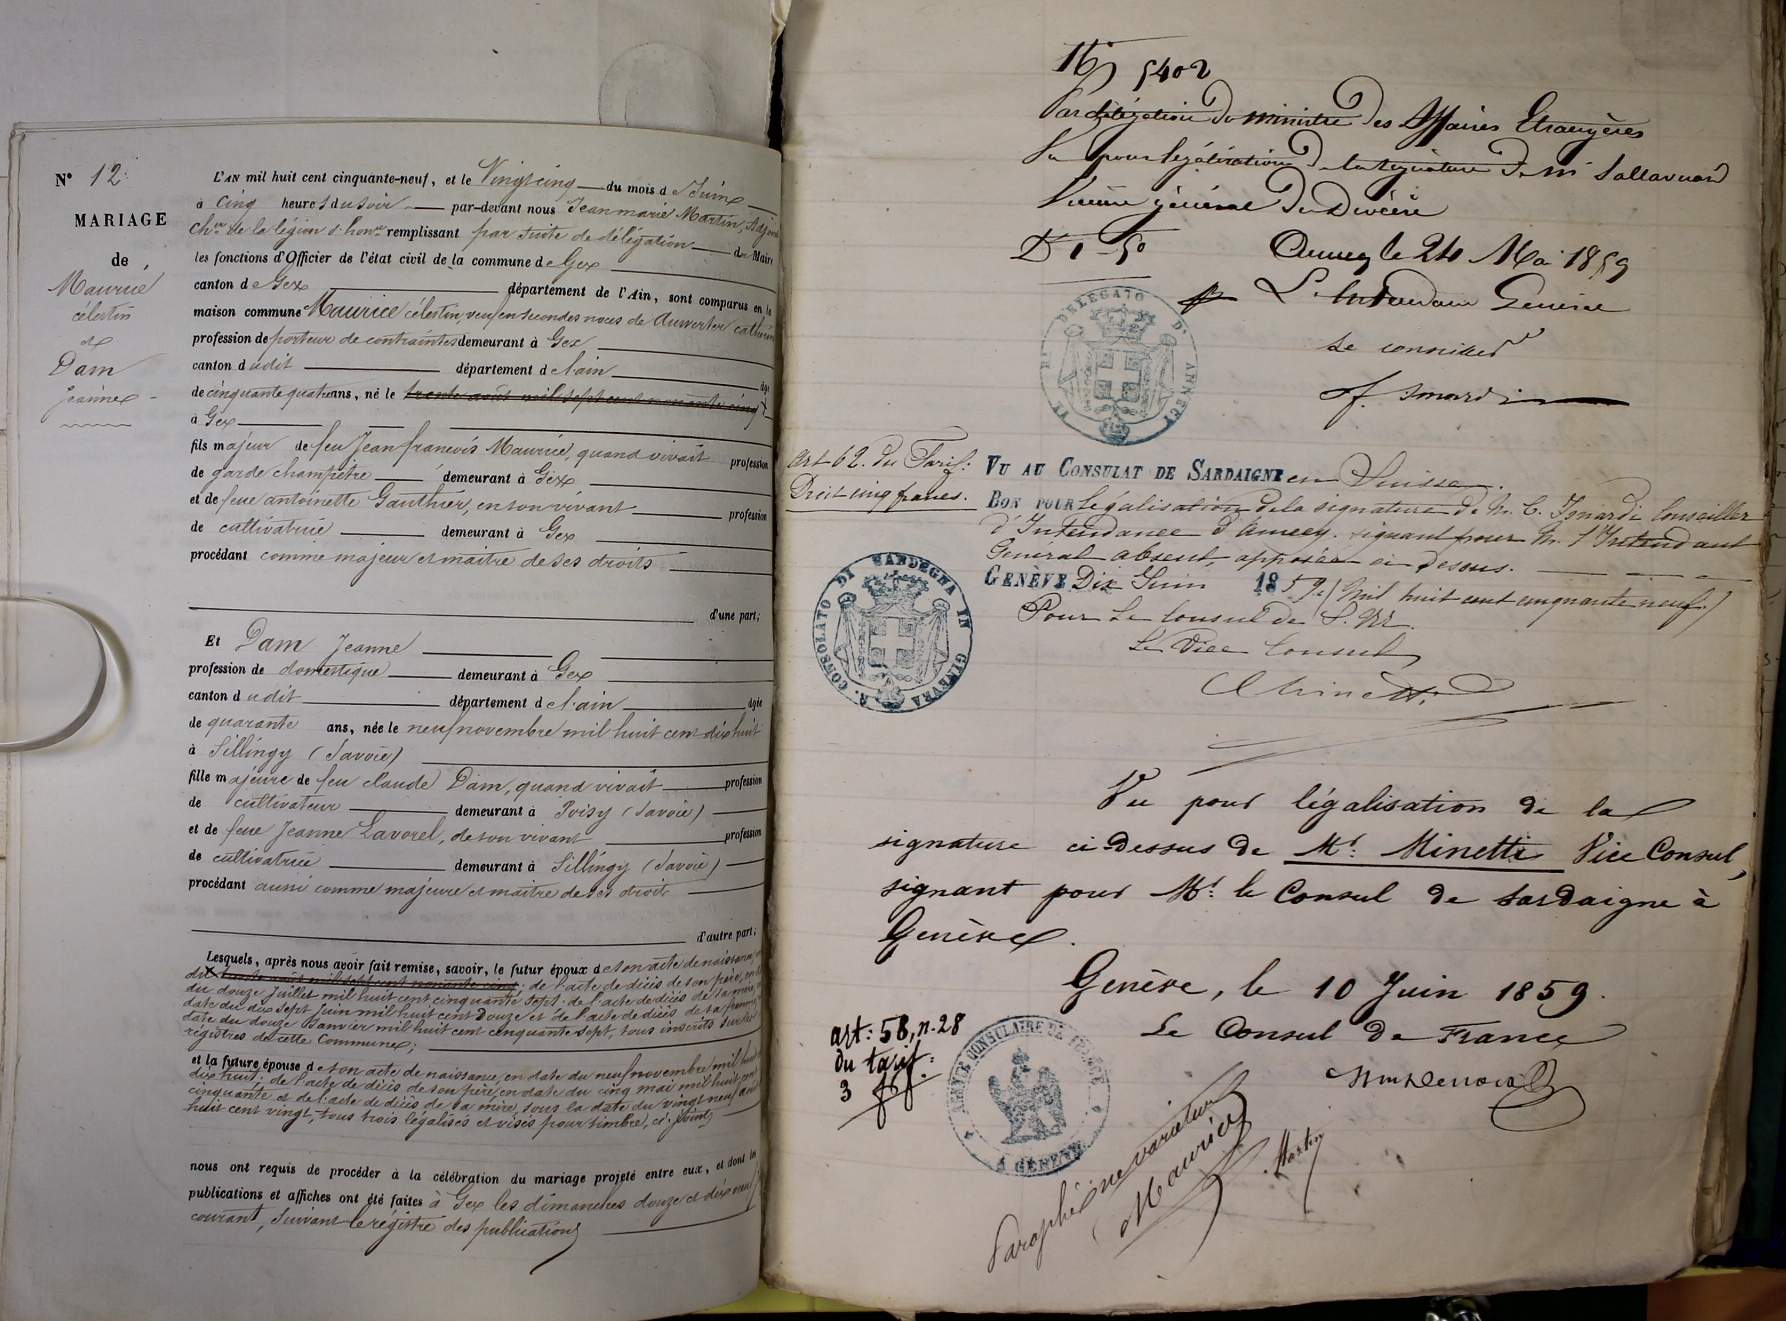 N° 12.
MARIAGE
de
Maurice
célestin
et
Dam
Jeanne
L'AN mil huit cent cinquante-neuf, et le Vingt cinq du mois de Juin
à cinq heures du soir par-devant nous Jean marie Martin, Adjoint
Cher de la légion d'honr remplissant par suite de délégation de Maire
les fonctions d'Officier de l'état civil de la commune de Gex
canton de Gex département de l'Ain, sont comparus en la
maison commune Maurice célestin, veuf en secondes noces de Anwerter catherine
profession de porteur de contraintes demeurant à Gex
canton dudit département de l'ain âgé
de cinquante quatre ans, né le trente août mil sept cent nonante cinq
à Gex
fils majeur de feu Jean francois Maurice, quand vivait profession
de garde champêtre demeurant à Gex
et de feue antoinette Gauthier, en son vivant profession
de cultivatrice demeurant à Gex
procédant comme majeur et maitre de ses droits
d'une part;
Et Dam Jeanne
profession de domestique demeurant à Gex
canton dudit département de l'ain âgée
de quarante ans, née le neuf novembre mil huit cent dix huit
à Sillingy (Savoie)
fille majeure de feu claude Dam, quand vivait profession
de cultivateur demeurant à Poisy (Savoie)
et de feue Jeanne Lavorel, de son vivant profession
de cultivatrice demeurant à Sillingy (Savoie)
procédant aussi comme majeure et maitre de ses droits
d'autre part;
Lesquels, après nous avoir fait remise, savoir, le futur époux de son acte de naissance,
du trente août mil sept cent nonante cinq; de l'acte de décès de son père, en
du douze Juillet mil huit cent cinquante sept; de l'acte de décès de sa mère,
date du dix sept Juin mil huit cent douze et de l'acte de décès de sa femme
date du douze Janvier mil huit cent cinquante sept, tous inscrits sur les
régistres de cette Commune;
et la future épouse de son acte de naissance, en date du neuf novembre mil huit
dix huit; de l'acte de décès de son père, en date du cinq mai mil huit cent
cinquante et de l'acte de décès de sa mère, sous la date du vingt neuf
huit cent vingt, tous trois légalisés et visés pour timbre, ci-joints
nous ont requis de procéder à la célébration du mariage projeté entre eux, et dont les
publications et affiches ont été faites à Gex les dimanches douze et dix neuf
courant, suivant le régistre des publications
5402
Par délégation du ministre des Affaires Etrangères
Vu pour légalisation de la signature de Mr
Vicaire général du Diocèse
D 1-50 Annecy le 24 Mai 1859
L'Intendant General
Le conseiller
Isnardi
R. DELEGATO D'ANNECY
art 62. du Tarif:
Droit cinq francs.
VU AU CONSULAT DE SARDAIGNE en Suisse.
BON POUR légalisation de la signature de M. C. Isnardi Conseiller
d'Intendance d'Annecy. signant pour M. l'Intendant
General absent, apposée ci dessus.
GENÈVE Dix Juin 1859. (Mil huit cent cinquante neuf.)
Pour Le Consul de S. M.
Le Vice Consul
Minetti
R. CONSOLATO DI SARDEGNA IN GINEVRA
Vu pour légalisation de la
signature ci-dessus de Mr. Minetti Vice Consul,
signant pour Mr. le Consul de Sardaigne à
Genève.
Genève, le 10 Juin 1859.
Le Consul de France
art: 58, n. 28
du tarif:
3 f
AGENCE CONSULAIRE DE FRANCE A GENÈVE
Paraphé ne varietur
Maurice
Martin